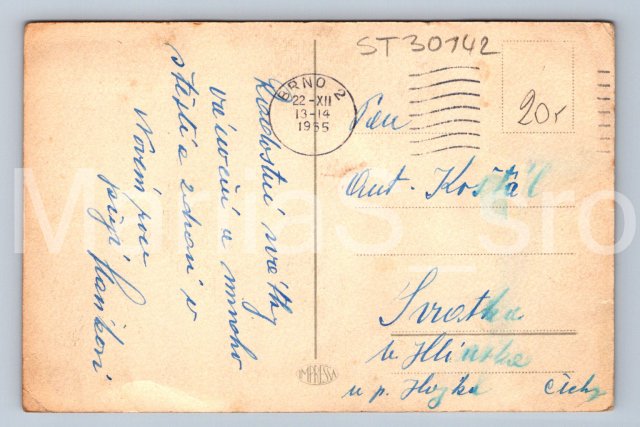 ST30142
BRNO 2
22-XII
13-14
1955
20,-
Pan
Ant. Košťál
Svratka
u Hlinska
u p. Hájka Čechy
Radostné svátky
vánoční a mnoho
štěstí a zdraví v
Novém roce
přejí
IMPRESSA